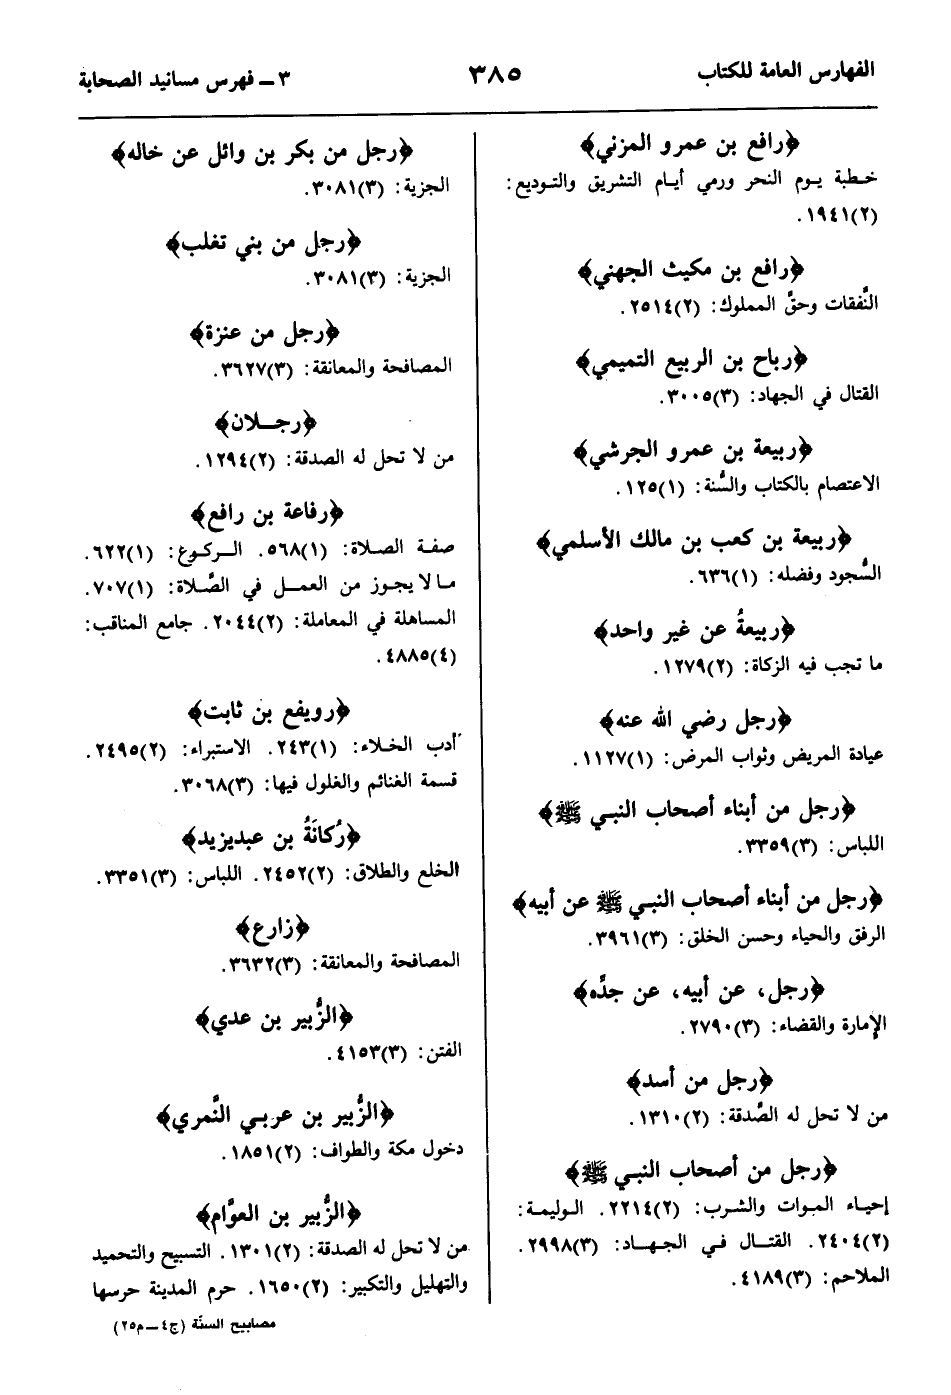 الفهارس العامة للكتاب
٣٨٥
٣ ـ فهرس مسانيد الصحابة
﴿رافع بن عمرو المزني﴾
خطبة يوم النحر ورمي أيام التشريق والتوديع:
(٢)١٩٤١.
﴿رافع بن مكيث الجهني﴾
النَّفقات وحقَّ المملوك: (٢)٢٥١٤.
﴿رباح بن الربيع التميمي﴾
القتال في الجهاد: (٣)٣٠٠٥.
﴿ربيعة بن عمرو الجرشي﴾
الاعتصام بالكتاب والسُّنة: (١)١٢٥.
﴿ربيعة بن كعب بن مالك الأسلمي﴾
السُّجود وفضله: (١)٦٣٦.
﴿ربيعةُ عن غير واحد﴾
ما تجب فيه الزكاة: (٢)١٢٧٩.
﴿رجل رضي الله عنه﴾
عيادة المريض وثواب المرض: (١)١١٢٧.
﴿رجل من أبناء أصحاب النبي ﷺ﴾
اللباس: (٣)٣٣٥٩.
﴿رجل من أبناء أصحاب النبي ﷺ عن أبيه﴾
الرفق والحياء وحسن الخلق: (٣)٣٩٦١.
﴿رجل، عن أبيه، عن جدِّه﴾
الإمارة والقضاء: (٣)٢٧٩٠.
﴿رجل من أسد﴾
من لا تحل له الصَّدقة: (٢)١٣١٠.
﴿رجل من أصحاب النبي ﷺ﴾
إحياء الموات والشرب: (٢)٢٢١٤. الوليمة:
(٢)٢٤٠٤. القتال في الجهاد: (٣)٢٩٩٨.
الملاحم: (٣)٤١٨٩.
﴿رجل من بكر بن وائل عن خاله﴾
الجزية: (٣)٣٠٨١.
﴿رجل من بني تغلب﴾
الجزية: (٣)٣٠٨١.
﴿رجل من عنزة﴾
المصافحة والمعانقة: (٣)٣٦٢٧.
﴿رجلان﴾
من لا تحل له الصدقة: (٢)١٢٩٤.
﴿رفاعة بن رافع﴾
صفة الصلاة: (١)٥٦٨. الركوع: (١)٦٢٢.
ما لا يجوز من العمل في الصَّلاة: (١)٧٠٧.
المساهلة في المعاملة: (٢)٢٠٤٤. جامع المناقب:
(٤)٤٨٨٥.
﴿رويفع بن ثابت﴾
أدب الخلاء: (١)٢٤٣. الاستبراء: (٢)٢٤٩٥.
قسمة الغنائم والغلول فيها: (٣)٣٠٦٨.
﴿رُكانَةُ بن عبديزيد﴾
الخلع والطلاق: (٢)٢٤٥٢. اللباس: (٣)٣٣٥١.
﴿زارع﴾
المصافحة والمعانقة: (٣)٣٦٣٢.
﴿الزُّبير بن عدي﴾
الفتن: (٣)٤١٥٣.
﴿الزُّبير بن عربي النَّمري﴾
دخول مكة والطواف: (٢)١٨٥١.
﴿الزُّبير بن العوَّام﴾
من لا تحل له الصدقة: (٢)١٣٠١. التسبيح والتحميد
والتهليل والتكبير: (٢)١٦٥٠. حرم المدينة حرسها
مصابيح السنّة (ج٤ ـ م٢٥)